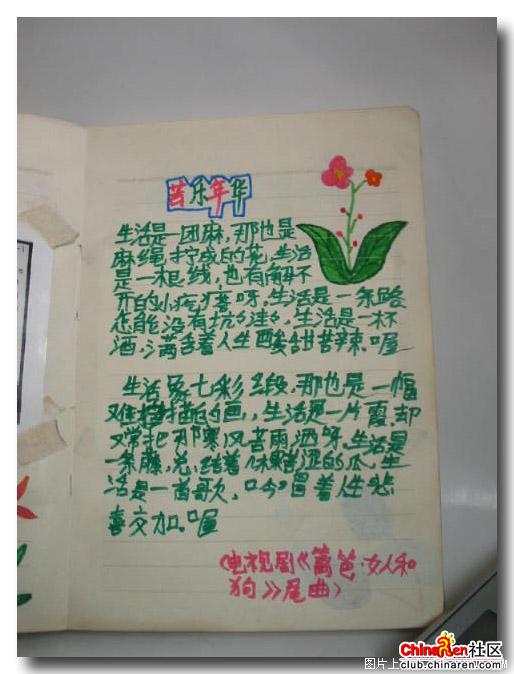 苦乐年华
生活是一团麻,那也是
麻绳拧成的花,生活
是一根线,也有解不
开的小疙瘩呀,生活是一条路
怎能没有坑洼,生活是一杯
酒,满含着人生酸甜苦辣,喔
生活象七彩缎,那也是一幅
难描的画,生活是一片霞,却
又常把那寒风苦雨洒呀,生活是
一条藤,总结着几颗苦涩的瓜,生
活是一首歌,吟着人生悲
喜交加,喔
<电视剧《篱笆·女人和
狗》尾曲>
ChinaRen社区
club.chinaren.com
图片上